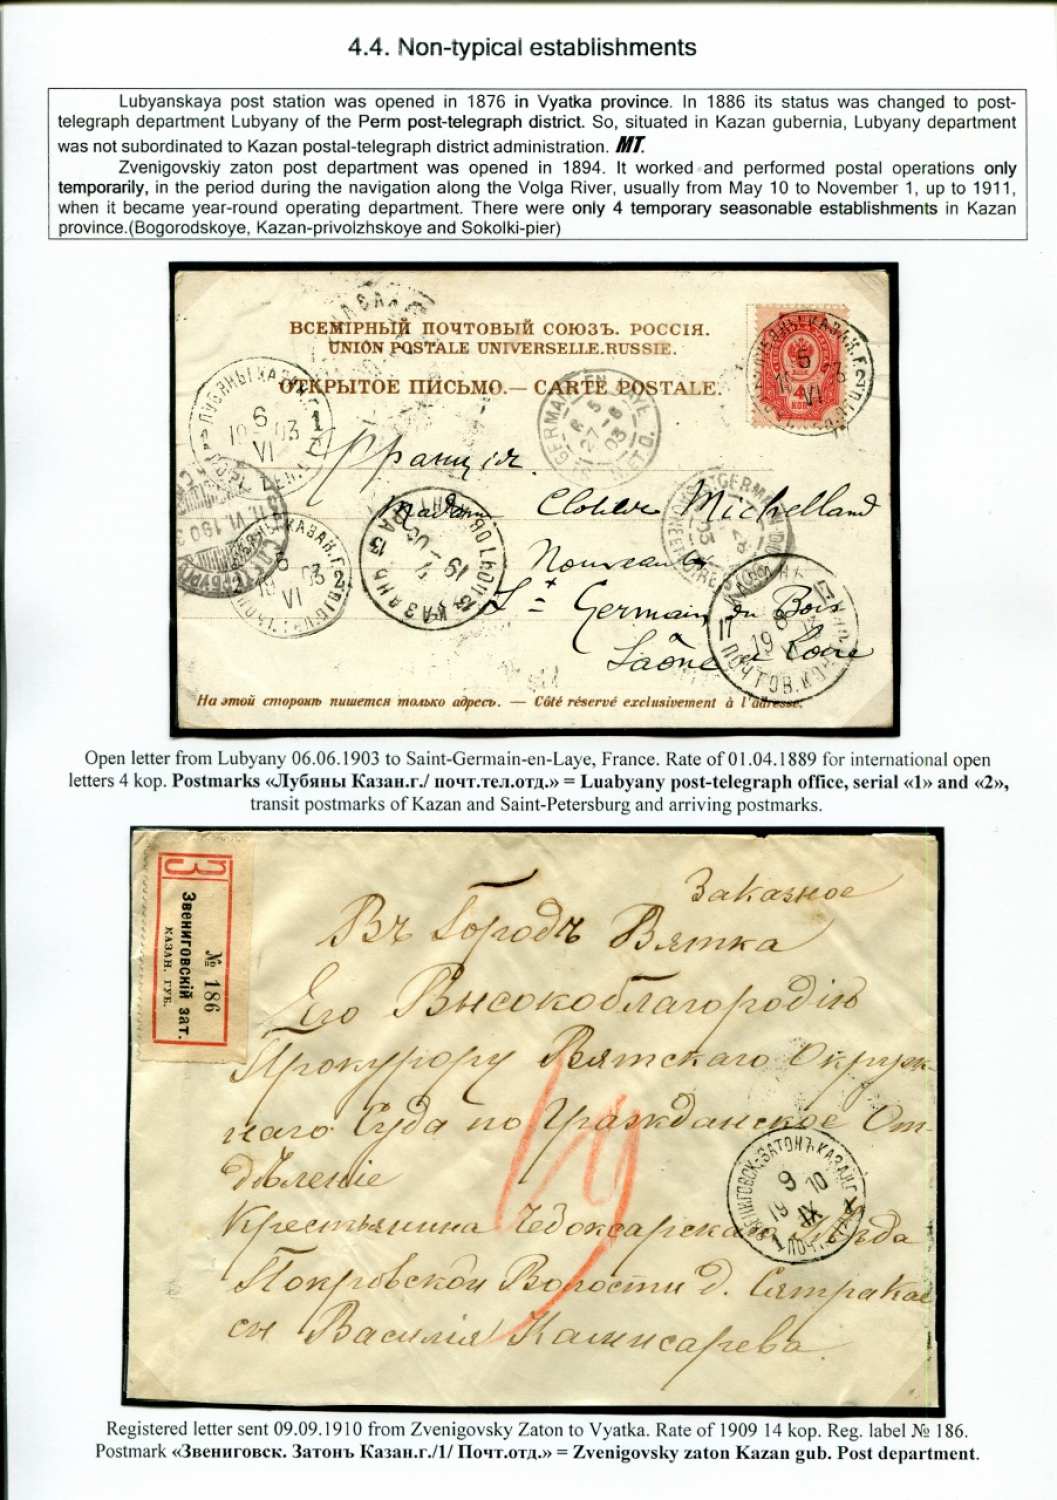 4.4. Non-typical establishments
Lubyanskaya post station was opened in 1876 in Vyatka province. In 1886 its status was changed to post-
telegraph department Lubyany of the Perm post-telegraph district. So, situated in Kazan gubernia, Lubyany department
was not subordinated to Kazan postal-telegraph district administration. MT.
Zvenigovskiy zaton post department was opened in 1894. It worked and performed postal operations only
temporarily, in the period during the navigation along the Volga River, usually from May 10 to November 1, up to 1911,
when it became year-round operating department. There were only 4 temporary seasonable establishments in Kazan
province.(Bogorodskoye, Kazan-privolzhskoye and Sokolki-pier)
ВСЕМІРНЫЙ ПОЧТОВЫЙ СОЮЗЪ. РОССІЯ.
UNION POSTALE UNIVERSELLE.RUSSIE.
ОТКРЫТОЕ ПИСЬМО.— CARTE POSTALE.
ЛУБЯНЫ КАЗАН.Г.
6
19 03
VI
1
Франція.
Madame Michelland
Nouveautés
St Germain du Bois
Saône et Loire
На этой сторонѣ пишется только адресъ. — Côté réservé exclusivement à l'adresse.
Open letter from Lubyany 06.06.1903 to Saint-Germain-en-Laye, France. Rate of 01.04.1889 for international open
letters 4 kop. Postmarks «Лубяны Казан.г./ почт.тел.отд.» = Luabyany post-telegraph office, serial «1» and «2»,
transit postmarks of Kazan and Saint-Petersburg and arriving postmarks.
З
№ 186
Звениговскій зат.
КАЗАН. ГУБ.
Заказное
Въ Городъ Вятка
Его Высокоблагородію
Прокурору Вятскаго Окруж-
наго Суда по Гражданское От-
дѣленіе
Крестьянина Чебоксарскаго Уѣзда
Покровской Волости д. Сятракас
сы Василія Камисарева.
19
ЗВЕНИГОВСК. ЗАТОНЪ КАЗАН.Г.
9
19 10
IX
1
Registered letter sent 09.09.1910 from Zvenigovsky Zaton to Vyatka. Rate of 1909 14 kop. Reg. label № 186.
Postmark «Звениговск. Затонъ Казан.г./1/ Почт.отд.» = Zvenigovsky zaton Kazan gub. Post department.